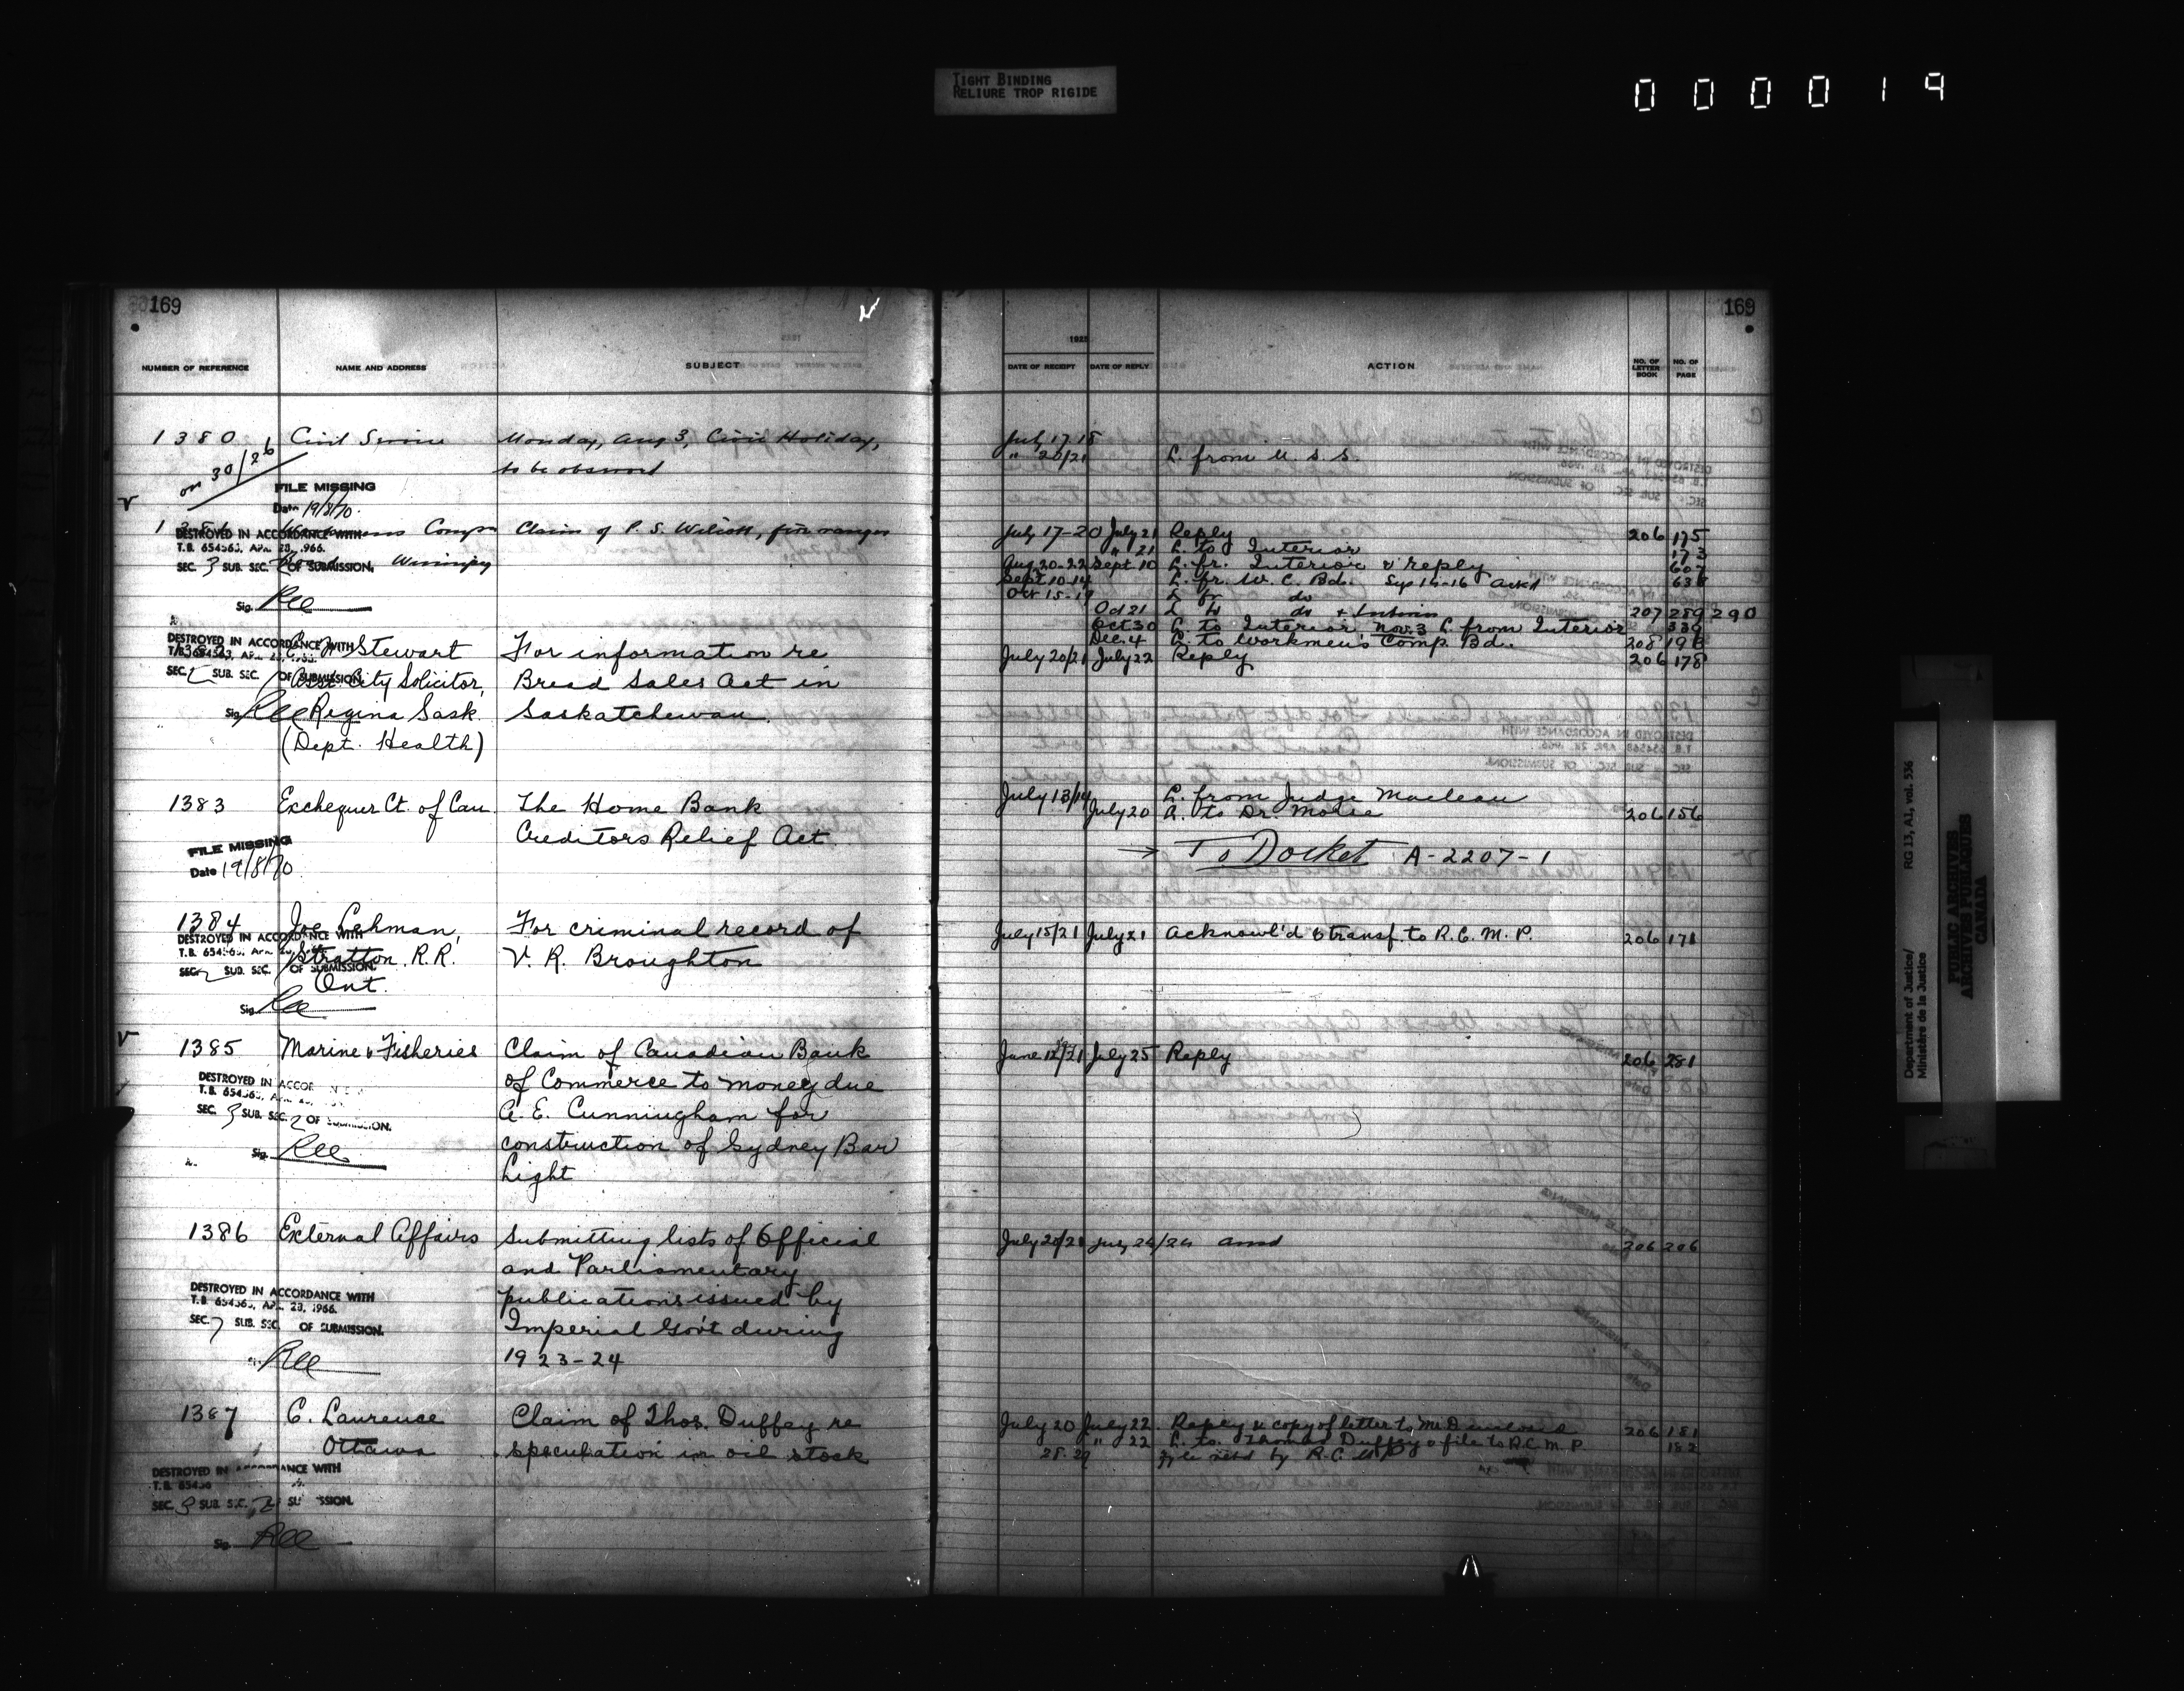 TIGHT BINDING
RELIURE TROP RIGIDE
000019
169
NUMBER OF REFERENCE NAME AND ADDRESS SUBJECT
1380 Civil Service Monday, Aug 3, Civic Holiday,
on 30/26 to be observed
FILE MISSING
Date 19/8/70.
Comp Claim of P. S. fire ranger
DESTROYED IN ACCORDANCE WITH
T.B. 654563, APR. 28, 1966.
SEC. 3 SUB. SEC. 2 OF SUBMISSION. Winnipeg
Sig. Ree
DESTROYED IN ACCORDANCE WITH Stewart For information re
Asst. City Solicitor, Bread Sales Act in
SEC. SUB. SEC. OF SUBMISSION.
Sig. Ree Regina Sask. Saskatchewan.
(Dept. Health)
1383 Exchequer Ct. of Can. The Home Bank
Creditors Relief Act
FILE MISSING
Date 19/8/70
1384 Joe Lehman, For criminal record of
DESTROYED IN ACCORDANCE WITH
Stratton R.R. V. R. Broughton
SEC. SUB. SEC. OF SUBMISSION.
Ont.
Sig. Ree
1385 Marine & Fisheries Claim of Canadian Bank
DESTROYED IN of Commerce to money due
SEC. 3 SUB. SEC. 2 OF SUBMISSION. A. E. Cunningham for
Sig. Ree construction of Sydney Bar
Light
1386 External Affairs Submitting lists of Official
and Parliamentary
DESTROYED IN ACCORDANCE WITH publications issued by
T.B. 654563, APR. 28, 1966.
SEC. 7 SUB. SEC. OF SUBMISSION. Imperial Gov't during
Ree 1923-24
1387 C. Laurence Claim of Thos. Duffey re
Ottawa speculation in oil stock
DESTROYED IN ACCORDANCE WITH
SEC. 3 SUB. SEC. 2
Sig. Ree
169
DATE OF RECEIPT DATE OF REPLY ACTION NO. OF LETTER BOOK NO. OF PAGE
July 17-18
" 20/21 L. from U. S. S.
July 17-20 July 21 Reply 206 175
" 21 L. to Interior 173
Aug. 20-22 Sept 10 L. fr. Interior & reply 607
Sept 10-14 L. fr. W. C. Bd. 638
Oct 15-19 L fr do
Oct 21 L to do + Interior 207 289 290
Oct 30 L to Interior Nov. 3 L from Interior 339
Dec. 4 L. to Workmen's Comp. Bd. 208 198
July 20/21 July 22 Reply 206 178
July 13/14 L. from Judge Maclean
July 20 A. to Dr. 206 156
To Docket A-2207-1
July 15/21 July 21 Acknowl'd & transf. to R.C.M.P. 206 171
June 12/21 July 25 Reply 206 281
July 20/21 July 24/24 206 206
July 20 July 22. Reply & copy of letter to Mr. 206 181
" 22 L. to Thomas Duffey & file to R.C.M.P. 182
28-29 File retd by R.C.M.P.
RG 13, A1, vol. 536
Department of Justice/
Ministère de la Justice
PUBLIC ARCHIVES
ARCHIVES PUBLIQUES
CANADA